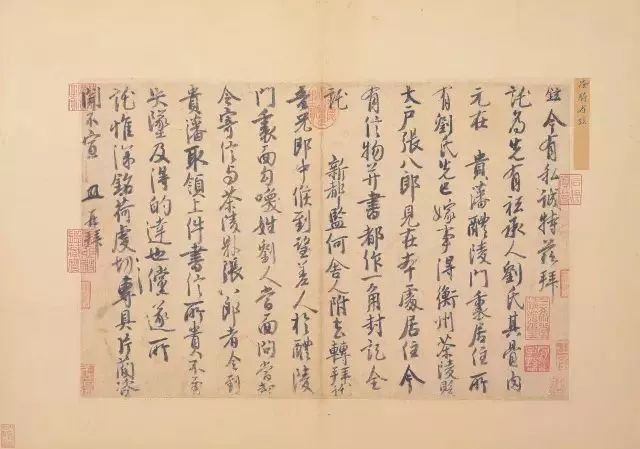 鉉今有私誠特茲拜
託為先有祗承人劉氏其骨肉
元在 貴藩醴陵門裏居住所
有劉氏先已嫁事得衡州茶陵縣
大户張八郎見在本處居住今
有信物并書都作一角封記全
託 新都監何舍人附去轉拜託
吾兄郎中候到望差人於醴陵
門裏面勾喚姓劉人當面問當却
令寄信与茶陵縣張八郎者令到
貴藩取領上件書信所貴不至
失墜及得的達也儻遂所
託惟深銘荷虔切專具片簡咨
聞不宣 再拜